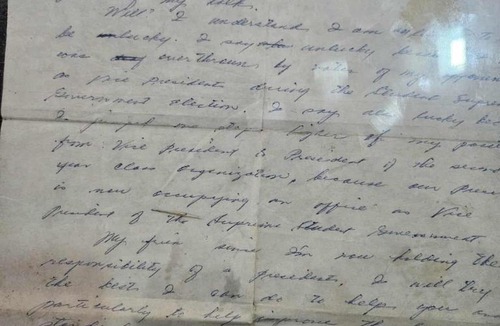 of my
Well? I understand I am
be unlucky. I say unlucky
was overthrown by votes of my
as Vice President during the Student Supreme
Government election. I say
I jumped one step higher of my
from Vice President to President of the second
year class organization, because our
is now occupying an office as Vice
President of the Supreme Student Government
My since I'm now holding the
responsibility of a president, I will try
the best I can do to help you
particularly to help improve the